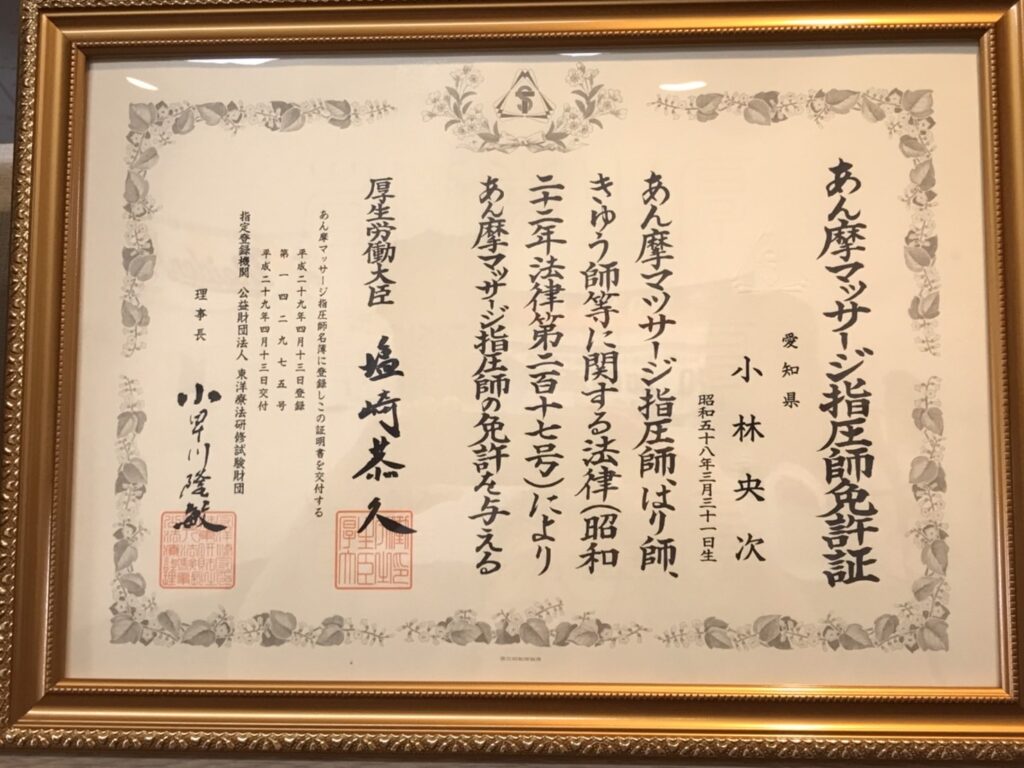 あん摩マッサージ指圧師免許証
愛知県
小林央次
昭和五十八年三月三十一日生
あん摩マツサージ指圧師、はり師、
きゆう師等に関する法律(昭和
二十二年法律第二百十七号)により
あん摩マッサージ指圧師の免許を与える
厚生労働大臣 塩崎恭久
あん摩マッサージ指圧師名簿に登録しこの証明書を交付する
平成二十九年四月十三日登録
第一四二九七五号
平成二十九年四月十三日交付
指定登録機関 公益財団法人 東洋療法研修試験財団
理事長 小早川隆敏